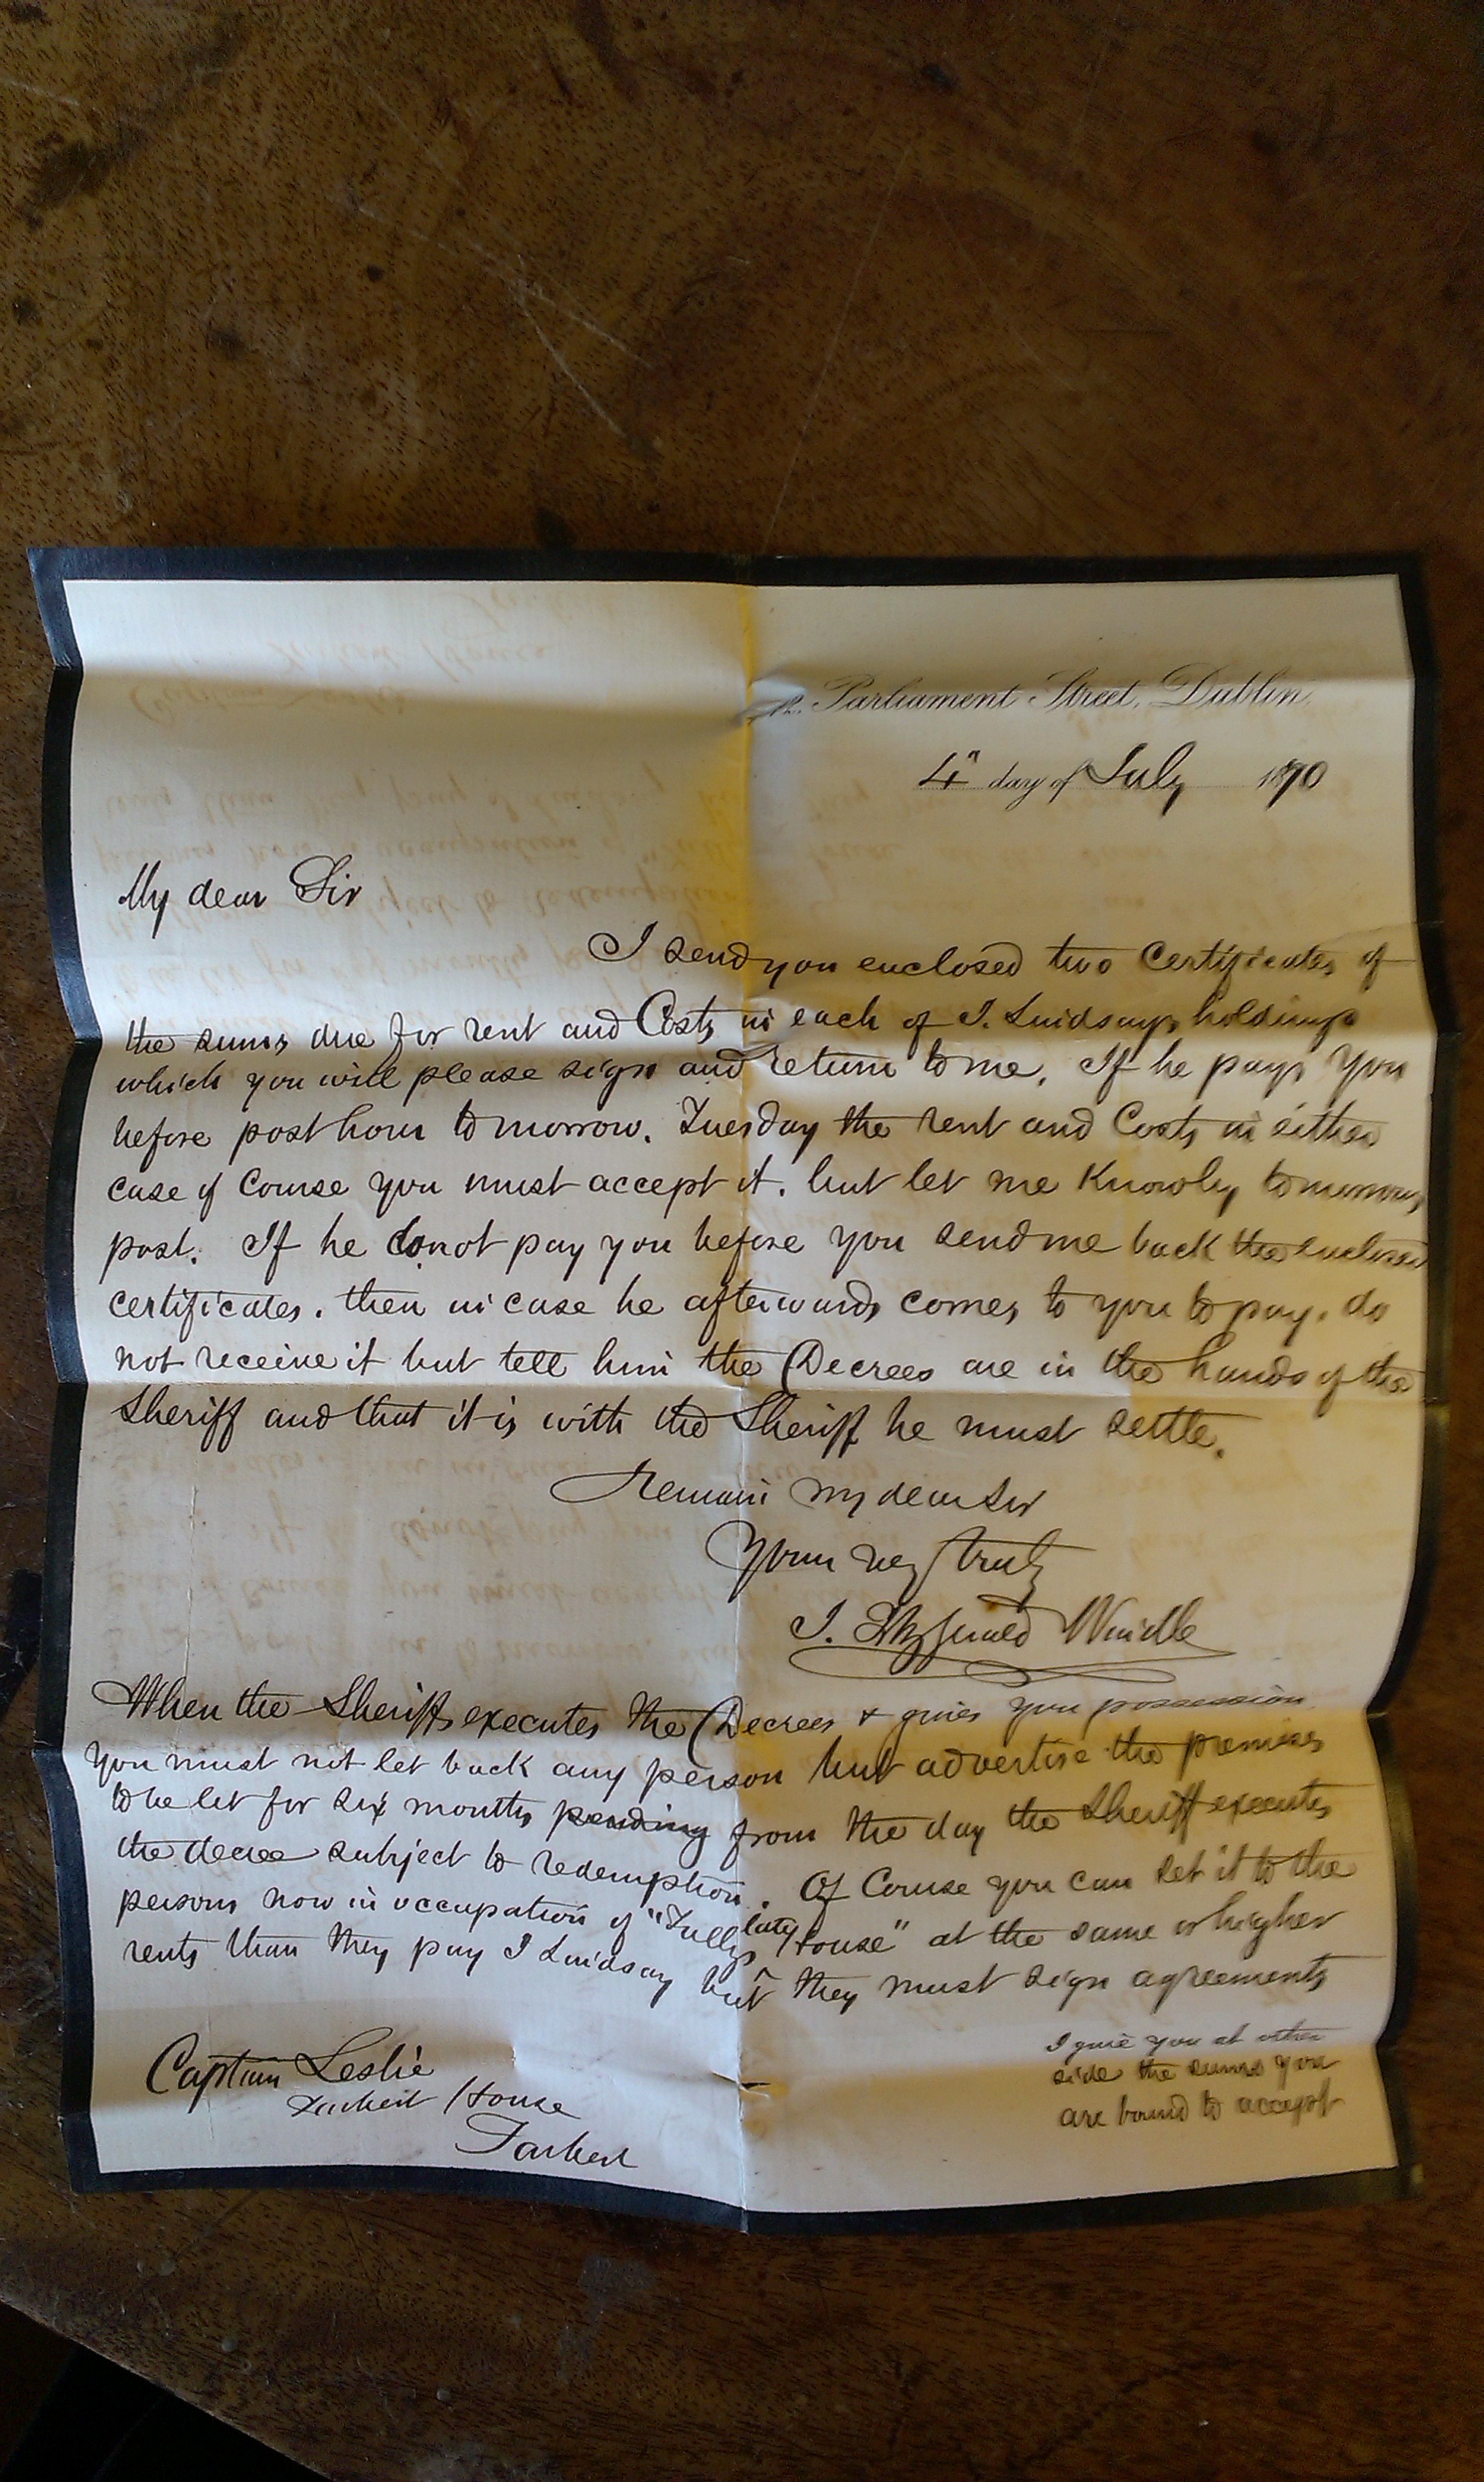 Parliament Street, Dublin.
4" day of July 1870
My dear Sir
I send you enclosed two Certificates of
the sums due for rent and Costs in each of J. Lindsays holdings
which you will please sign and return to me. If he pays you
before post hour tomorrow. Tuesday the rent and Costs in either
case of Course you must accept it. but let me Know by tomorrows
post. If he do not pay you before you send me back the enclosed
certificates. then in case he afterwards comes to you to pay. do
not receive it but tell him the Decrees are in the hands of the
Sheriff and that it is with the Sheriff he must settle.
Remain my dear Sir
Yours very truly
J. Fitzgerald Windle
When the Sheriff executes the Decrees & gives you possession
you must not let back any person but advertise the premises
to be let for six months pending from the day the Sheriff executes
the decree subject to redemption. Of Course you can let it to the
persons now in occupation of "Tullys House" at the same or higher
rents than they pay J Lindsay but they must sign agreements
Captain Leslie
Tarbert House
Tarbert
I give you at other
side the sums you
are bound to accept